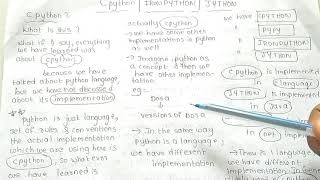 Cpython | IRONPYTHON | JYTHON
Cpython ?
What is this ?
what if I say, everything
we have learned was
about Cpython
because we have
talked about python language,
but we have not discussed
about its implementation
Python is just language,
set of rules & conventions
the actual implementation
which we are using here is
cpython, so what ever
we have learned is
actually cpython
→ we have some other
implementations in python as
well
→ Imagine, python as
a concept, then we
have other implemen-
tation
eg -
Dosa
VERSIONS OF DOSA
→ In the same way
Python is a language
we have different
implementation
we have
CPYTHON
PYPY
IRONPYTHON
JYTHON
Cpython is implemented
in C language
JYTHON is implemented
in Java
in .net
→ Thus 1 language
we have different
implementation